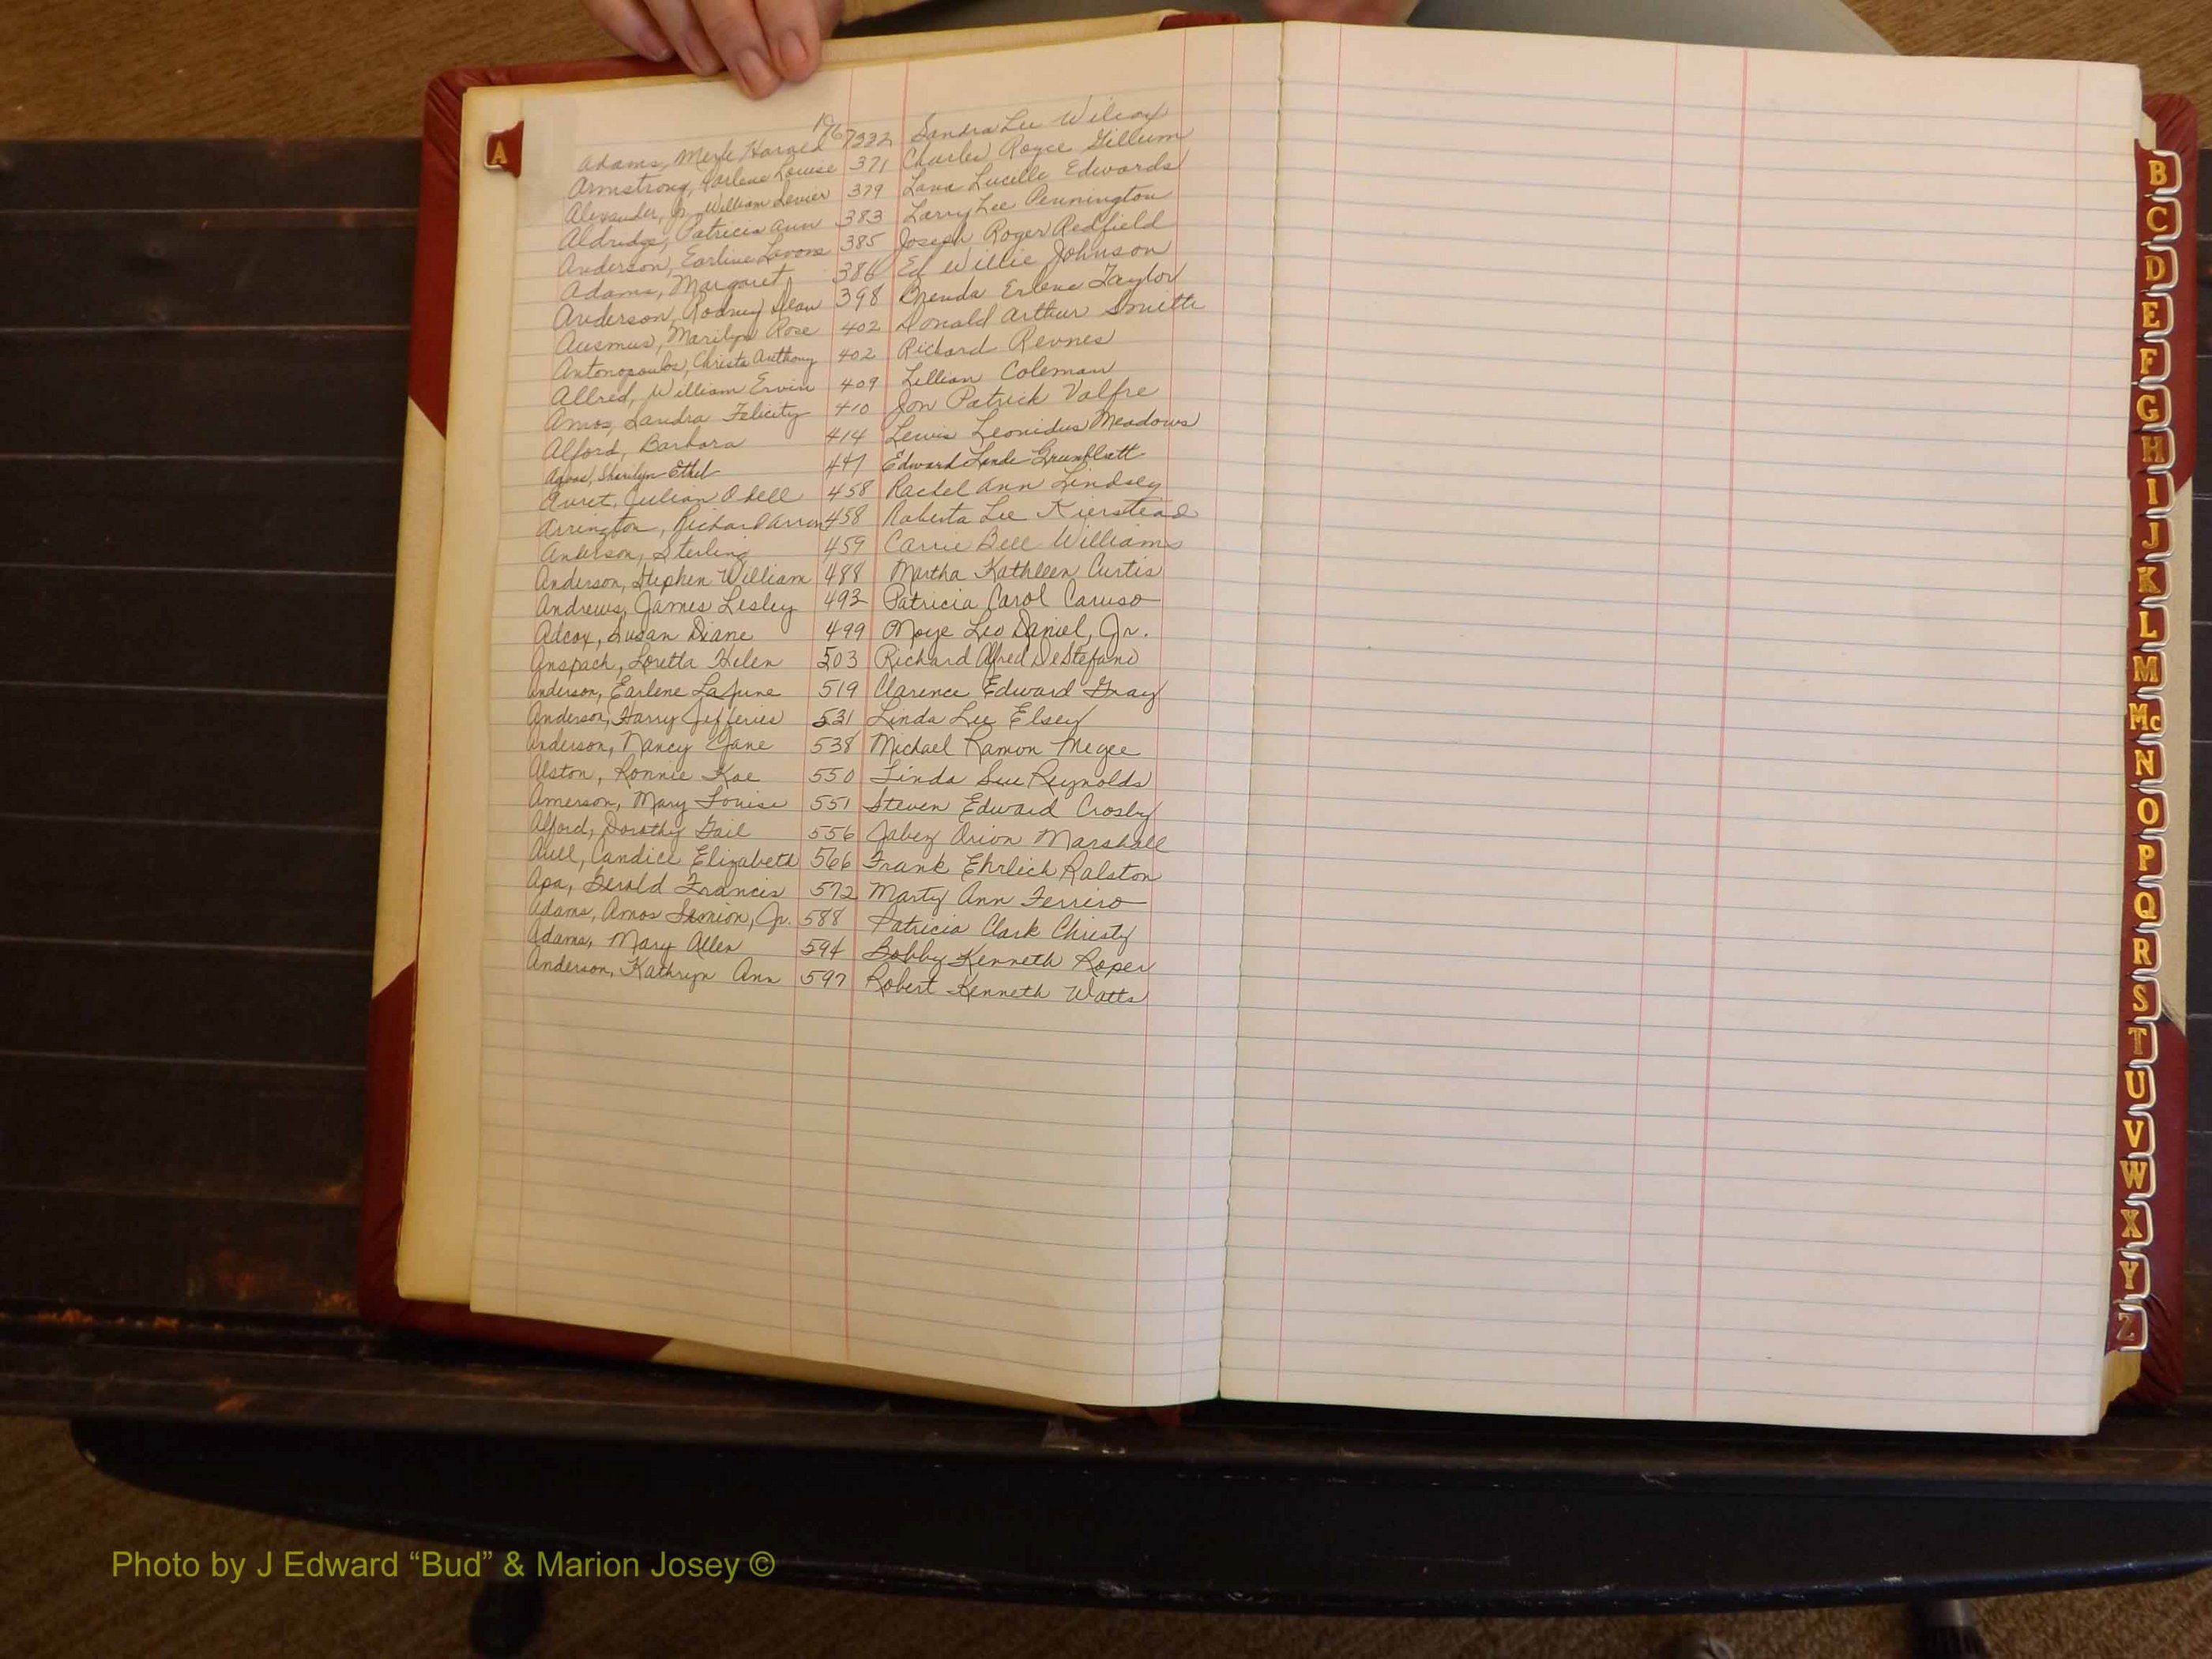 1967
Adams, Merle Harold 332 Sandra Lee Wilcox
Armstrong, Darlene Louise 371 Charles Royce Gillum
Alexander, Jr., William Levier 379 Lana Lucille Edwards
Aldridge, Patricia Ann 383 Larry Lee Pennington
Anderson, Earline Lavons 385 Joseph Roger Redfield
Adams, Margaret 386 Ed Willie Johnson
Anderson, Rodney Dean 398 Brenda Erlene Taylor
Ausmus, Marilyn Rose 402 Donald Arthur Smith
Antonopoulos, Christo Anthony 402 Richard Revnes
Allred, William Ervin 409 Lillian Coleman
Amos, Sandra Felicity 410 Jon Patrick Valfre
Alford, Barbara 414 Lewis Leonidus Meadows
Sherilyn Ethel 447 Edward Grumblatt
Auret, Julian Odell 458 Rachel Ann Lindsey
Arrington, Richard Arron 458 Roberta Lee Kierstead
Anderson, Sterling 459 Carrie Bell Williams
Anderson, Stephen William 488 Martha Kathleen Curtis
Andrews, James Lesley 493 Patricia Carol Caruso
Adcox, Susan Diane 499 Moye Leo Daniel, Jr.
Anspach, Loretta Helen 503 Richard Alfred DeStefano
Anderson, Earlene LaJune 519 Clarence Edward Gray
Anderson, Harry Jefferies 531 Linda Lee Elsey
Anderson, Nancy Jane 538 Michael Ramon Megee
Alston, Ronnie Kae 550 Linda Sue Reynolds
Amerson, Mary Louise 551 Steven Edward Crosby
Alford, Dorothy Gail 556 Jabez Orion Marshall
Aull, Candice Elizabeth 566 Frank Ehrlich Ralston
Apa, Gerald Francis 572 Marty Ann Ferrero
Adams, Amos Simion, Jr. 588 Patricia Clark Christy
Adams, Mary Allen 594 Bobby Kenneth Roper
Anderson, Kathryn Ann 597 Robert Kenneth Watts
A
B
C
D
E
F
G
H
I
J
K
L
M
Mc
N
O
P
Q
R
S
T
U
V
W
X
Y
Z
Photo by J Edward “Bud” & Marion Josey ©